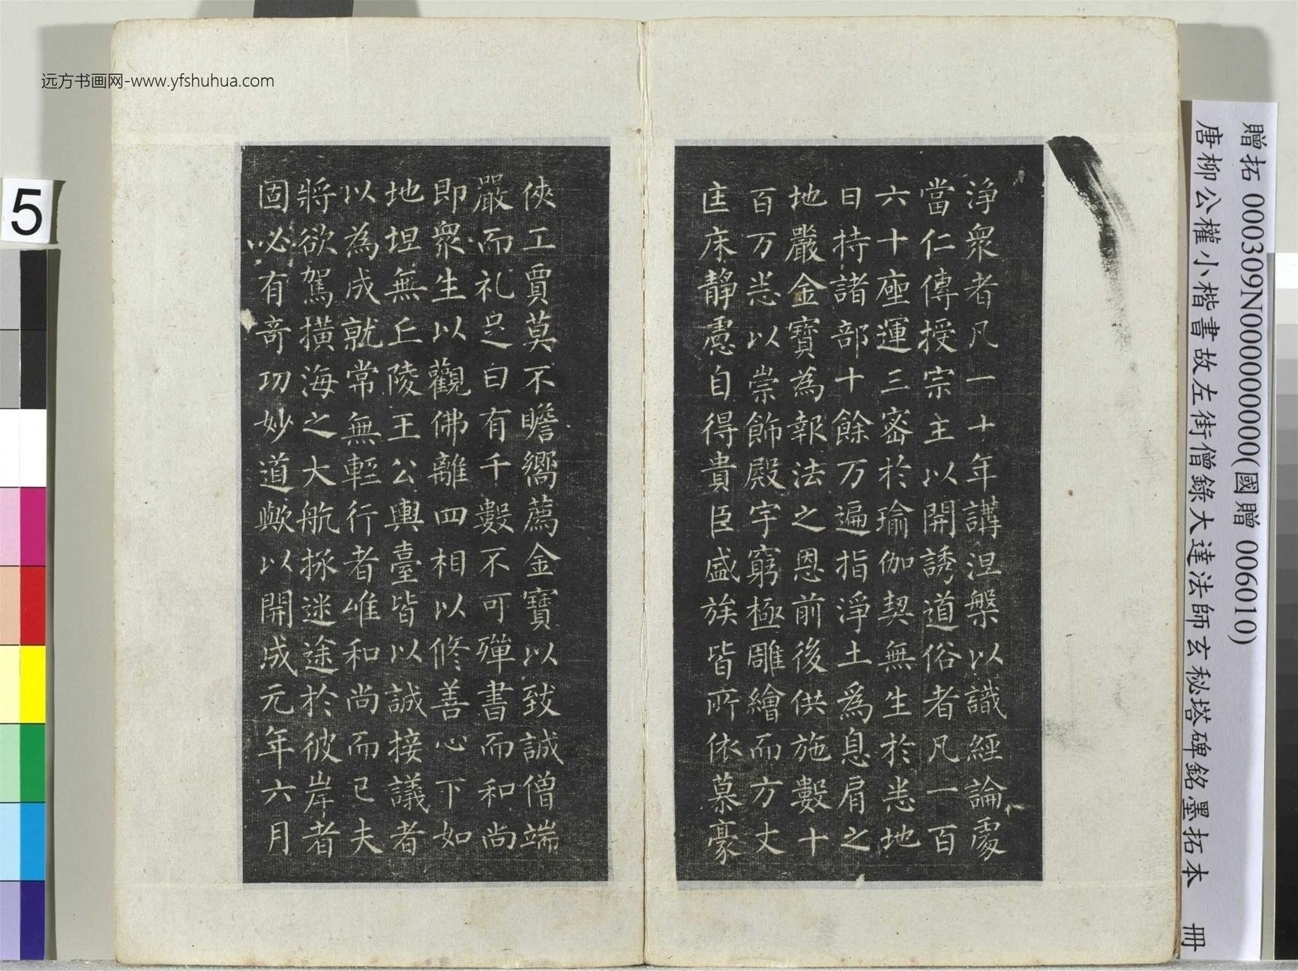 远方书画网-www.yfshuhua.com
5
贈拓 000309N000000000(國贈 006010)
唐柳公權小楷書故左街僧錄大達法師玄秘塔碑銘墨拓本 冊
淨衆者凡一十年講涅槃以識經論處
當仁傳授宗主以開誘道俗者凡一百
六十座運三密於瑜伽契無生於悉地
日持諸部十餘万遍指淨土為息肩之
地嚴金寶為報法之恩前後供施數十
百万悉以崇飾殿宇窮極雕繪而方丈
匡床靜慮自得貴臣盛族皆所依慕豪
俠工賈莫不瞻嚮薦金寶以致誠僧端
嚴而礼足日有千數不可殫書而和尚
即衆生以觀佛離四相以修善心下如
地坦無丘陵王公輿臺皆以誠接議者
以為成就常無輕行者唯和尚而已夫
將欲駕橫海之大航拯迷途於彼岸者
固必有奇功妙道歟以開成元年六月